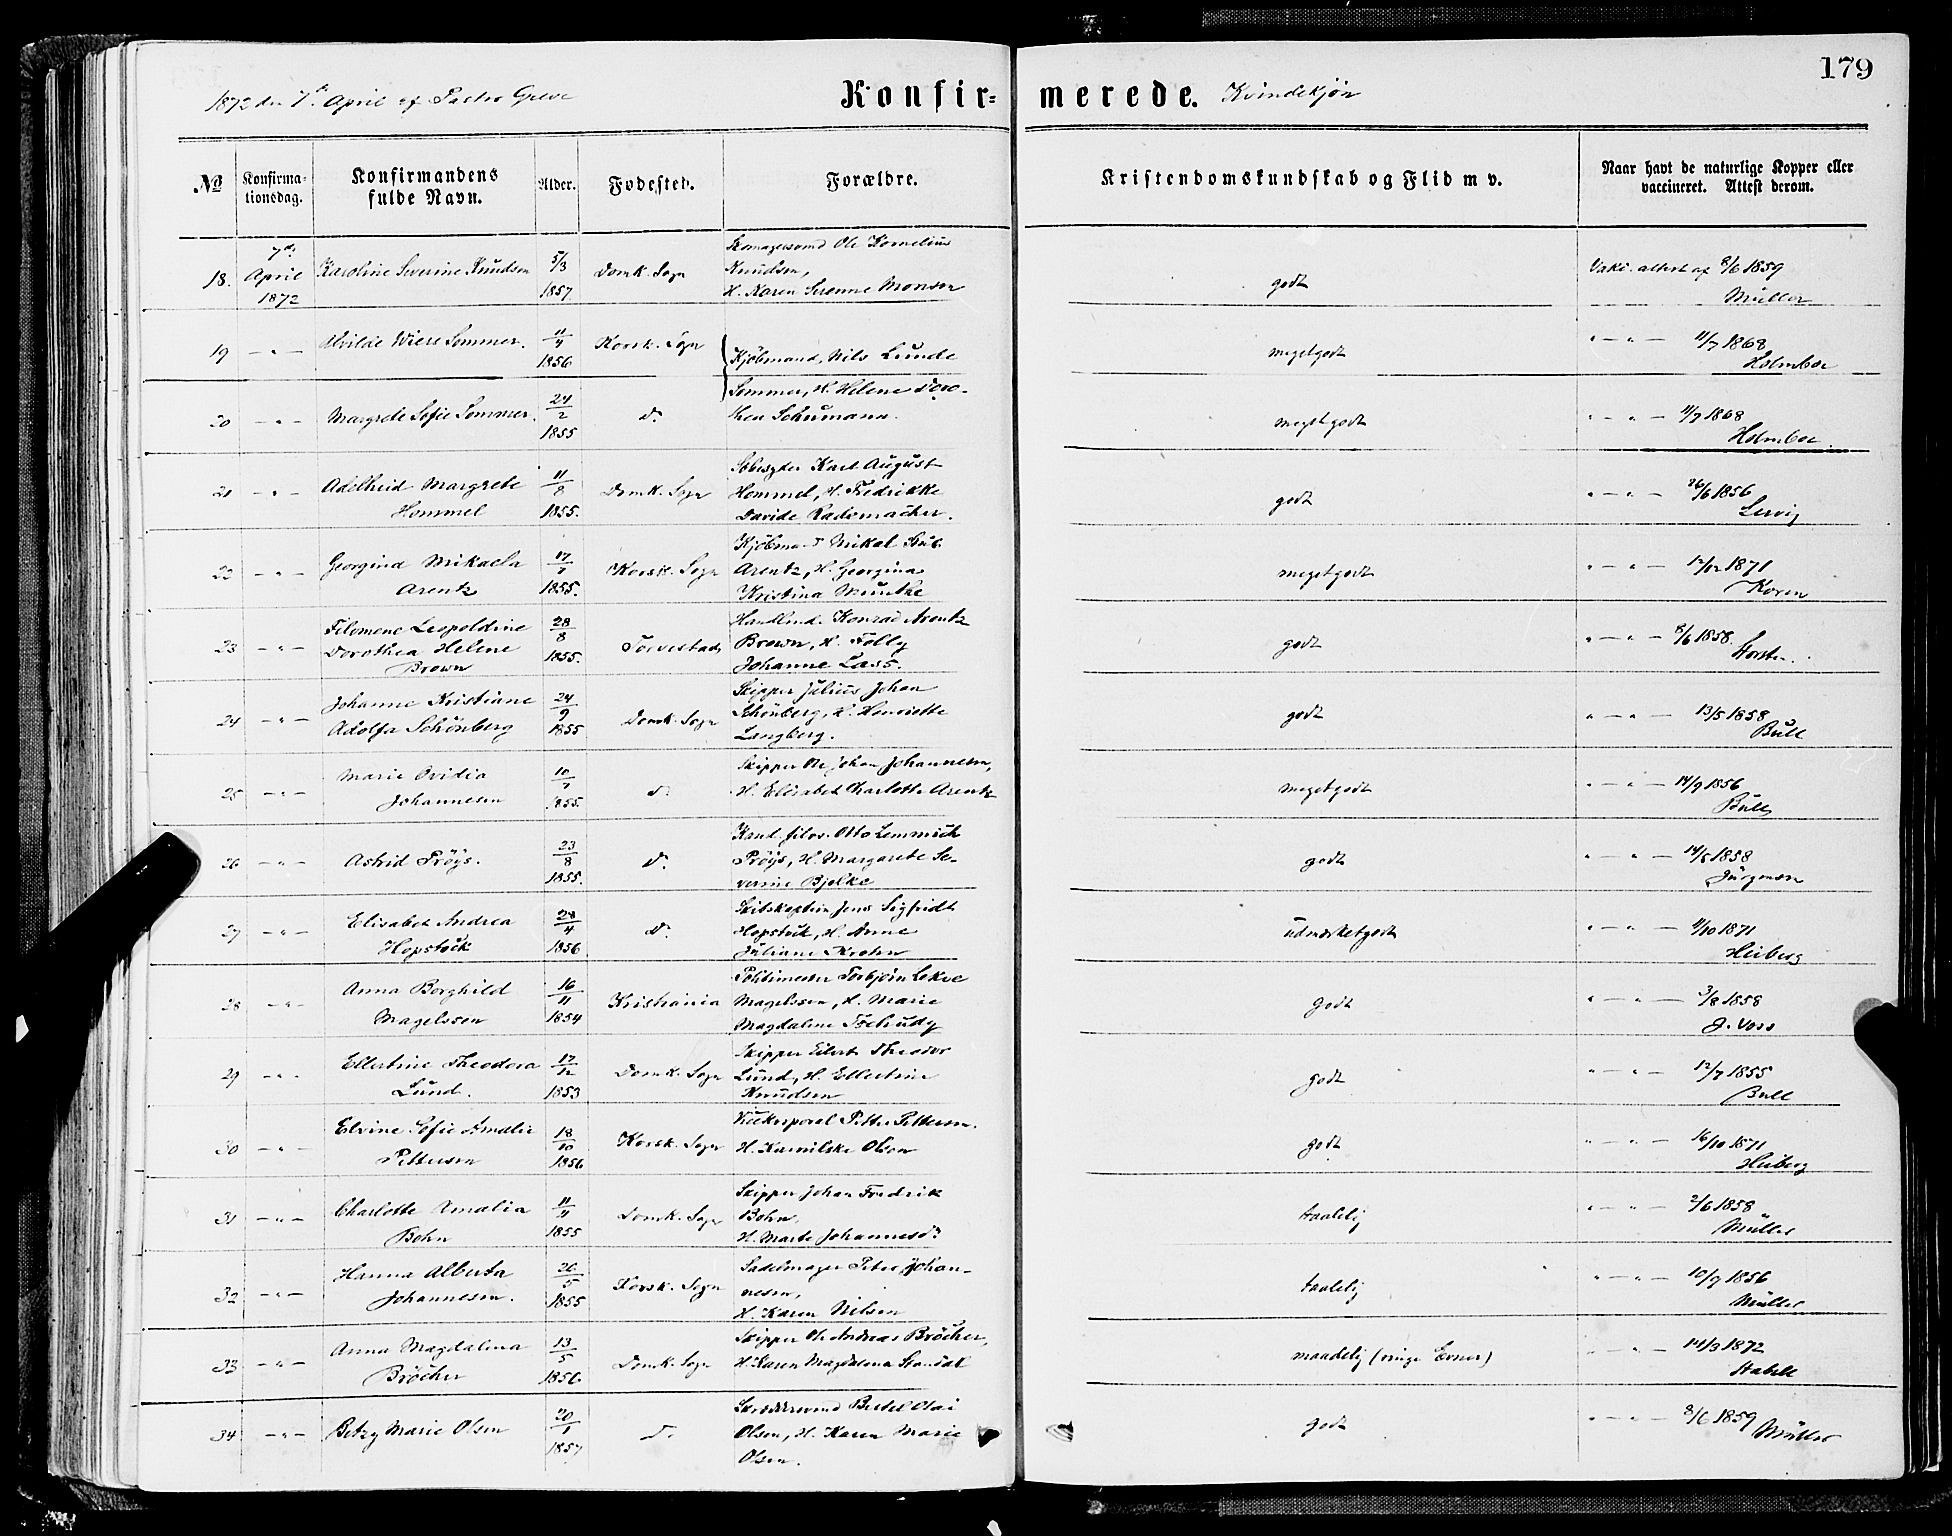 179
1872 den 7de April af Pastor Greve
Konfir=merede. Kvindekjøn
No
Konfirma=
tionsdag.
Konfirmandens
fulde Navn.
Alder.
Fødested.
Forældre.
Kristendomskundskab og Flid m v.
Naar havt de naturlige Kopper eller
vaccineret. Attest derom.
18. 7de April 1872
Karoline Severine Knudsen
5/3 1857
Domk. Sogn
Skomagersvend Ole Kornelius
Knudsen,
H. Karen Serenne Monsen
godt
Vakc. attest af 8/6 1859
Müller
19 - " -
Alvilde Wiese Sommer.
11/4 1856
Korsk. Sogn
Kjöbmand, Nils Lunde
Sommer, H. Helene Doro-
thea Schumann.
megetgodt
" - " - 11/7 1868
Holmboe
20 - " -
Margrete Sofie Sommer.
24/2 1855
do
megetgodt
" - " - 11/7 1868
Holmboe.
21 - " -
Adelheid Margrete
Hommel
11/8 1855.
Domk. Sogn
Karl August
Hommel, H. Fredrikke
Davide Rademacher.
godt
" - " - 26/6 1856
Lervig
22 - " -
Georgina Mikaela
Arentz
17/7 1855.
Korsk. Sogn
Kjöbmand Mikal
Arentz, H. Georgina
Kristina Munthe
megetgodt
" - " - 12/12 1871
Koren
23 - " -
Filomene Leopoldine
Dorothea Helene
Brown
28/8 1855.
Torvestad
Handlend. Konrad Arentz
Brown, H. Folly
Johanne Lass.
godt
" - " - 8/6 1858.
24 - " -
Johanne Kristiane
Adolfa Schönberg
24/9 1855
Domk. Sogn
Skipper Julius Johan
Schönberg, H. Henriette
Langberg.
godt
" - " - 13/5 1858
Bull
25 - " -
Marie Ovidia
Johannesen
10/7 1855.
do
Skipper Ole Johan Johannesen,
H. Elisabet Karlotte Arentz
megetgodt
" - " - 14/9 1856
Bull
26 - " -
Astrid Pröys.
23/8 1855.
do
Kand. filos. Otto Lemmich
Pröys, H. Margarete Se-
verine Bjelke
godt
" - " - 14/5 1858
Jürgensen
27 - " -
Elisabet Andrea
Hopstock
28/4 1856
do
Skibskaptein Jens Sigfridt
Hopstock, H. Anne
Juliane Krohn
udmærketgodt
" - " - 11/10 1871
Heiberg
28 - " -
Anna Borghild
Magelssen
16/11 1854
Kristiania
Politimester Torbjørn Lekve
Magelssen, H. Marie
Magdaline
Godt
" - " - 3/8 1858
J. Voss
29 - " -
Ellertine Theodora
Lund.
17/12 1853
Domk. Sogn
Skipper Eilert Theodor
Lund, H. Ellertine
Knudsen
godt
" - " - 12/7 1855
Bull
30 - " -
Elvine Sofie Amalie
Pettersen
18/10 1856
Korsk. Sogn
Vicekorporal Petter Pettersen.
H. Kamilske Olson
godt
" - " - 16/10 1871
Heiberg
31 - " -
Charlotte Amalia
Bohn
11/11 1855
Domk. Sogn
Skipper Johan Fredrik
Bohn,
H. Marte Johannesdr
taalelig
" - " - 2/6 1858
Müller
32 - " -
Hanna Alberta
Johannesen.
26/5 1855
Korsk. Sogn
Sadelmager Peter Johan-
nesen,
H. Karen Nilsen
taalelig
" - " - 10/9 1856
Müller
33 - " -
Anna Magdalena
Bröcher
13/5 1856
Domk. Sogn
Skipper Ole Andreas Bröcher,
H. Karen Magdalena Standal
maadelig (ringe Evner)
" - " - 14/3 1872
Stabell
34 - " -
Betzy Marie Olsen
20/1 1857
do
Skræddersvend Bertel Olai
Olsen, H. Karen Marie
Olsen.
godt
" - " - 8/6 1859
Müller